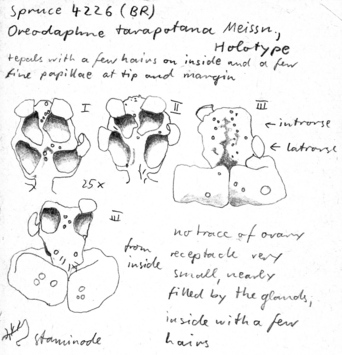 Spruce 4226 (BR)
Oreodaphne tarapotana Meissn.,
Holotype
tepals with a few hairs on inside and a few
fine papillae at tip and margin
I
II
III
introrse
latrorse
25x
III
from
inside
no trace of ovary
receptacle very
small, nearly
filled by the glands,
inside with a few
hairs
staminode